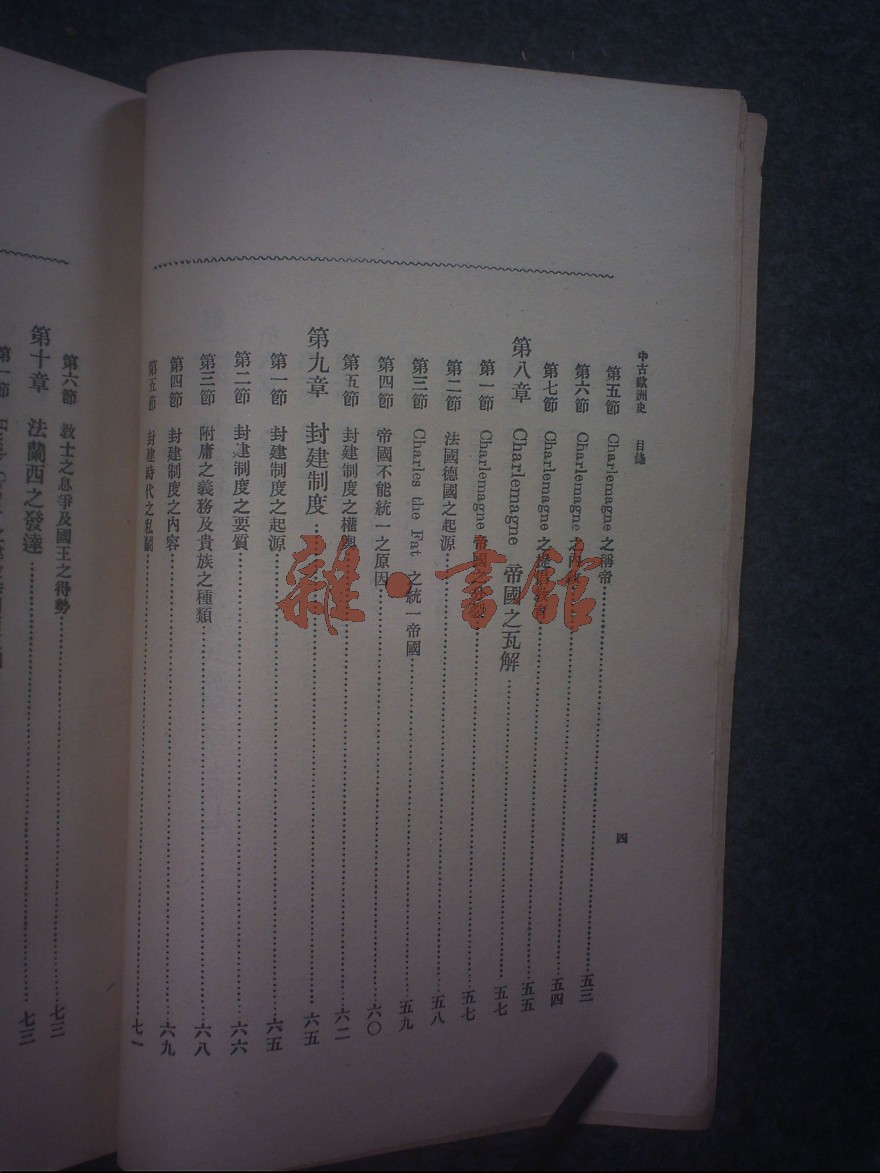 中古歐洲史 目錄
四
第五節 Charlemagne 之稱帝 五三
第六節 Charlemagne 之內政 五四
第七節 Charlemagne 之提倡教育 五五
第八章 Charlemagne 帝國之瓦解 五七
第一節 Charlemagne 帝國之 五七
第二節 法國德國之起源 五八
第三節 Charles the Fat 之統一帝國 五九
第四節 帝國不能統一之原因 六〇
第五節 封建制度之權輿 六二
第九章 封建制度 六五
第一節 封建制度之起源 六五
第二節 封建制度之要質 六六
第三節 附庸之義務及貴族之種類 六八
第四節 封建制度之內容 六九
第五節 封建時代之私鬬 七一
第六節 教士之息爭及國王之得勢 七三
第十章 法蘭西之發達 七三
第一節
雜·書館